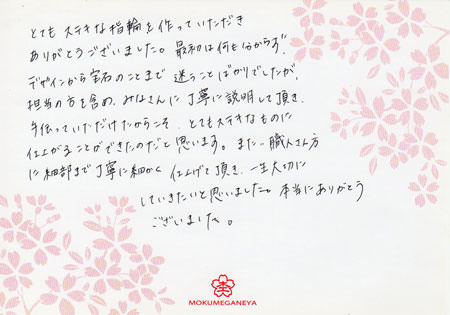 とても ステキな指輪を作っていただき
ありがとうございました。最初は何も分からず、
デザインから宝石のことまで 迷うことばかりでしたが、
担当の方を含め、みなさんに丁寧に説明して頂き、
手伝っていただけたからこそ、とてもステキなものに
仕上がることができたのだと思います。また、職人さん方
に細部まで丁寧に細かく 仕上げて頂き、一生大切に
していきたいと思いました。本当にありがとう
ございました。
MOKUMEGANEYA